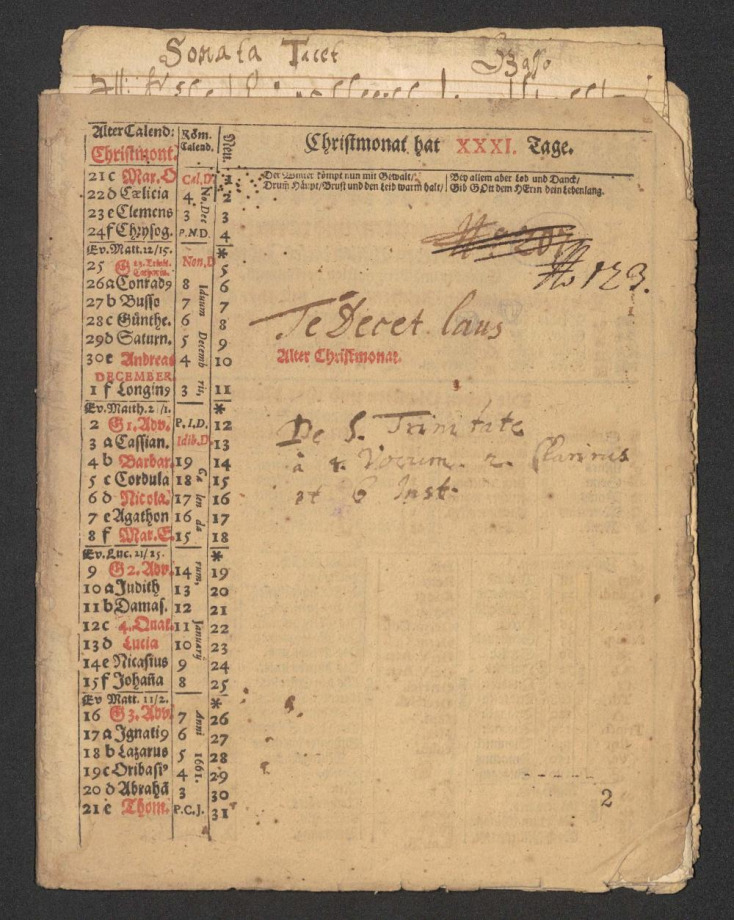 Sonata Tacet Basso
Alter Calend:
Christmont.
Röm.
Calend.
Neu.
Christmonat hat XXXI. Tage.
Der Winter kömpt nun mit Gewalt/
Drum Häupt/ Brust und den Leib warm halt/
Bey allem aber Lob und Danck/
Gib GOtt dem HErrn dein Lebenlang.
21 c Mar. O Cal. D. 1
22 d Cælicia 4 2
23 e Clemens 3 3
24 f Chrysog. P.N.D. 4
Ev. Matt. 12/15. *
25 G 25. Trinit. Non. D 5
26 a Conrad9 8 6
27 b Busso 7 7
28 c Günthe. 6 8
29 d Saturn. 5 9
30 e Andreas 4 10
DECEMBER.
1 f Longin9 3 11
Ev. Matth. 21/1. *
2 G 1. Adv. P.I.D. 12
3 a Cassian. Idib. D. 13
4 b Barbar. 19 14
5 c Cordula 18 15
6 d Nicola. 17 16
7 e Agathon 16 17
8 f Mar. E. 15 18
Ev. Luc. 21/25. *
9 G 2. Adv. 14 19
10 a Judith 13 20
11 b Damas. 12 21
12 c 4. Quat. 11 22
13 d Lucia 10 23
14 e Nicasius 9 24
15 f Johaña 8 25
Ev Matt. 11/2. *
16 G 3. Adv. 7 26
17 a Ignati9 6 27
18 b Lazarus 5 28
19 c Oribasi9 4 29
20 d Abrahã 3 30
21 e Thom. P.C.J. 31
No. Dec
Iduum Decembris,
Calendarum, Januarij Anni 1661.
No 123.
Te Decet laus
Alter Christmonat.
De S. Trinitate
à 4. Vocum. 2. Clarinis
et 6 Inst.
2